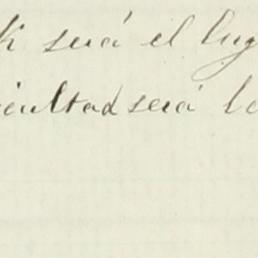 K será el lug
icultad será lo